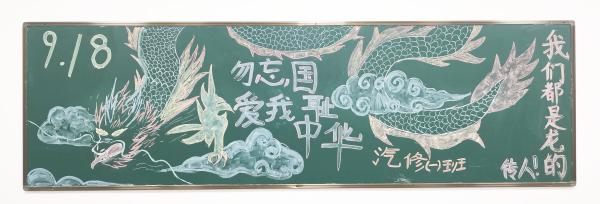 9.18
勿忘国耻
爱我中华
汽修(一)班
我们都是龙的
传人!